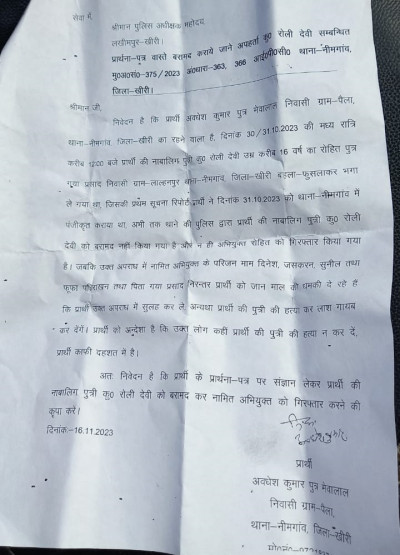 सेवा में,
श्रीमान पुलिस अधीक्षक महोदय
लखीमपुर-खीरी।
प्रार्थना-पत्र वास्ते बरामद कराये जाने अपहृता कु० रोली देवी सम्बन्धित
मु०अ०सं०-375/2023 अं०धारा-363, 366 आई०पी०सी० थाना-नीमगांव,
जिला-खीरी।
श्रीमान जी,
निवेदन है कि प्रार्थी अवधेश कुमार पुत्र मेवालाल निवासी ग्राम-पैला,
थाना-नीमगांव, जिला-खीरी का रहने वाला है, दिनांक 30/31.10.2023 की मध्य रात्रि
करीब 12:00 बजे प्रार्थी की नाबालिग पुत्री कु० रोली देवी उम्र करीब 16 वर्ष का रोहित पुत्र
गया प्रसाद निवासी ग्राम-लालनपुर थाना-नीमगांव, जिला-खीरी बहला-फुसलाकर भगा
ले गया था, जिसकी प्रथम सूचना रिपोर्ट प्रार्थी ने दिनांक 31.10.2023 को थाना-नीमगांव में
पंजीकृत कराया था, अभी तक थाने की पुलिस द्वारा प्रार्थी की नाबालिग पुत्री कु० रोली
देवी को बरामद नहीं किया गया है और न ही अभियुक्त रोहित को गिरफ्तार किया गया
है। जबकि उक्त अपराध में नामित अभियुक्त के परिजन माम दिनेश, जसकरन, सुनील तथा
फूफा तथा पिता गया प्रसाद निरन्तर प्रार्थी को जान माल की धमकी दे रहे हैं
कि प्रार्थी उक्त अपराध में सुलह कर ले, अन्यथा प्रार्थी की पुत्री की हत्या कर लाश गायब
कर देंगें। प्रार्थी को अन्देशा है कि उक्त लोग कहीं प्रार्थी की पुत्री की हत्या न कर दें,
प्रार्थी काफी दहशत में है।
अतः निवेदन है कि प्रार्थी के प्रार्थना-पत्र पर संज्ञान लेकर प्रार्थी की
नाबालिग पुत्री कु० रोली देवी को बरामद कर नामित अभियुक्त को गिरफ्तार करने की
कृपा करें।
दिनांक-16.11.2023
प्रार्थी
अवधेश कुमार पुत्र मेवालाल
निवासी ग्राम-पैला,
थाना-नीमगांव, जिला-खीरी